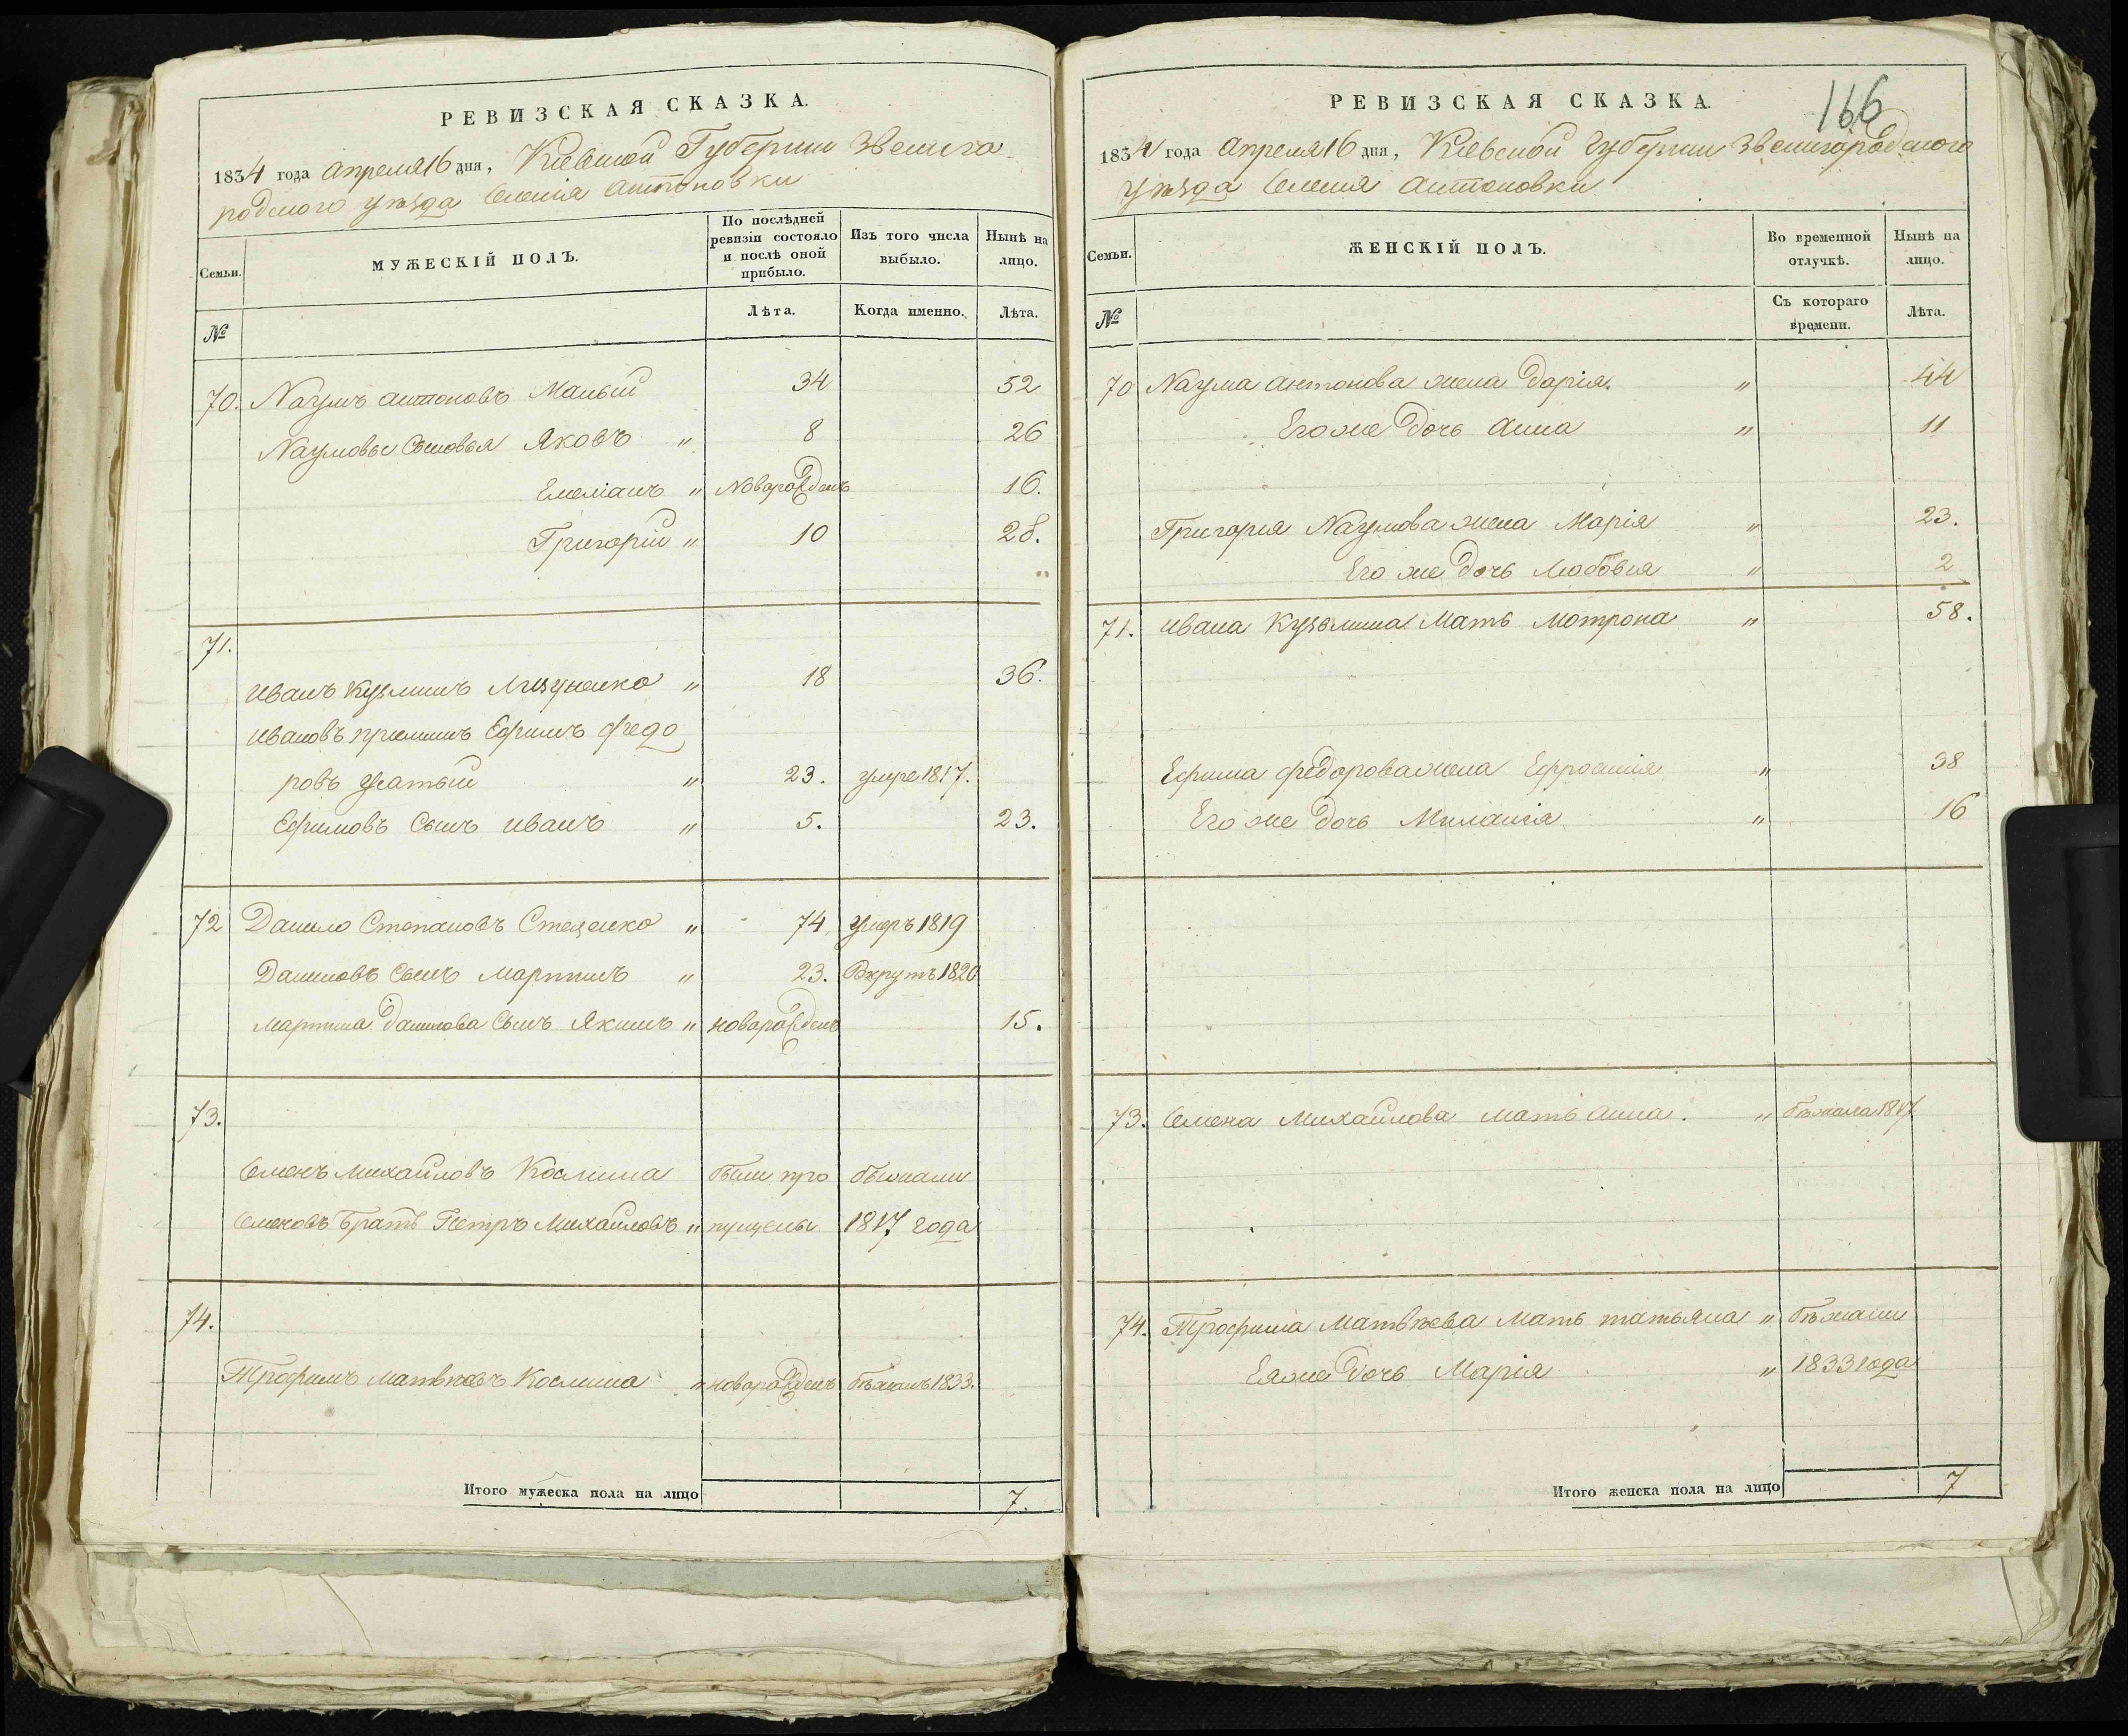 РЕВИЗСКАЯ СКАЗКА.
1834 года апреля 16 дня, Кіевской Губерніи Звениго
родского уѣзда Селенія Антоновки
Семьи.
МУЖЕСКІЙ ПОЛЪ.
По послѣдней ревизіи состояло и послѣ оной прибыло.
Изъ того числа выбыло.
Нынѣ на лицо.
№
Лѣта.
Когда именно.
Лѣта.
70. Наумъ антоновъ Малый 34 52
Наумовы Сыновья Яковъ " 8 26
Емеліанъ " Новорожденъ 16.
Григорій " 10 28.
71.
Иванъ Кузминъ " 18 36.
Ивановъ приемышъ Ефимъ Федо
ровъ " 23. умре 1817.
Ефимовъ Сынъ Иванъ " 5. 23.
72 Данило Степановъ Стеценко " 74 умеръ 1819
Даниловъ Сынъ Мартинъ " 23. Рекрутъ 1820
Мартина Данилова Сынъ Якимъ " новорожденъ 15.
73.
Семенъ Михайловъ Космина были про бежали
Семеновъ братъ Петръ Михайловъ " пущены 1817 года
74.
Трофимъ Матвѣевъ Космина " новорожденъ бѣжалъ 1833.
Итого мужеска пола на лицо 7.
РЕВИЗСКАЯ СКАЗКА.
166
1834 года апреля 16 дня, Кіевской Губерніи Звенигородского
уѣзда Селенія Антоновки
Семьи.
ЖЕНСКІЙ ПОЛЪ.
Во временной отлучкѣ.
Нынѣ на лицо.
№
Съ котораго времени.
Лѣта.
70 Наума антонова жена Дарія. " 44
Его же дочь Анна " 11
Григорія Наумова жена Марія " 23.
Его же дочь Любовія " 2
71. Ивана Кузмина Мать Мотрона " 58.
Ефима Федорова жена Ефросинія " 38
Его же дочь Миланія " 16
73. Семена Михайлова мать Анна. " бѣжала 1817
74. Трофима Матвѣева Мать татьяна " бѣжали
Ея же дочь Марія " 1833 года
Итого женска пола на лицо 7